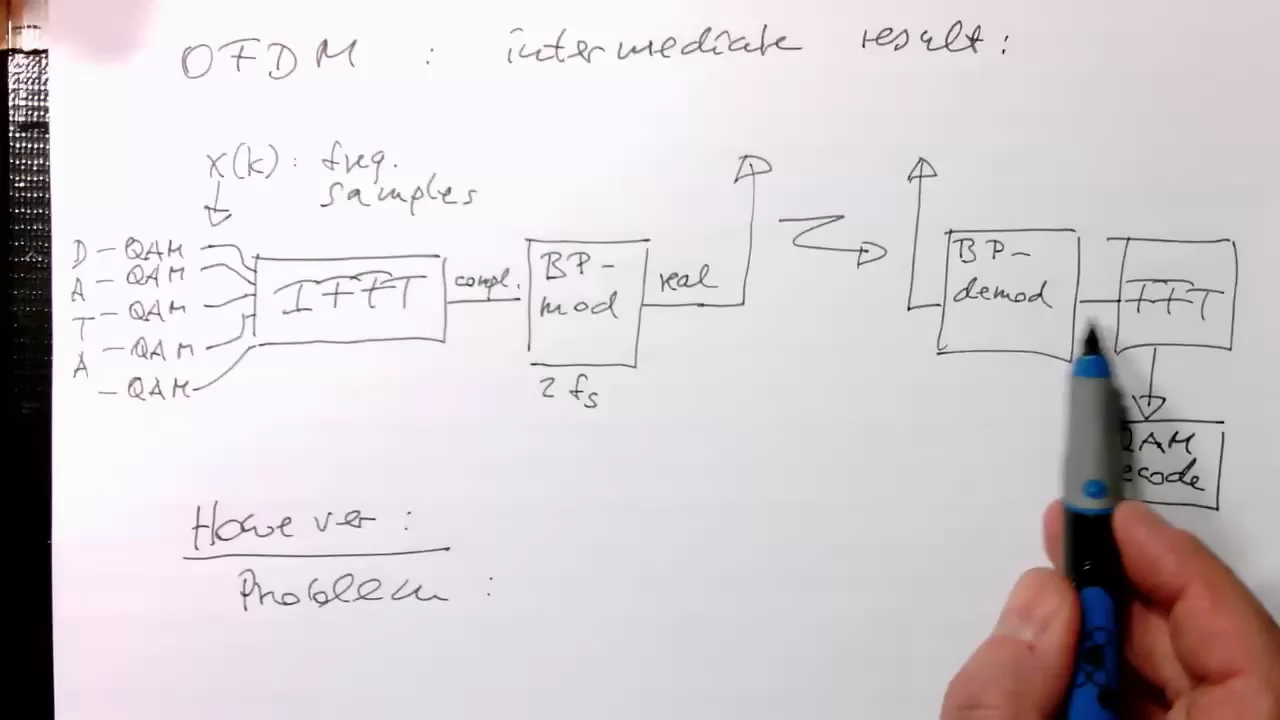 OFDM : intermediate result:
x(k): freq.
samples
D - QAM
A - QAM
T - QAM
A - QAM
- QAM
IFFT
compl.
BP-
mod
2 fs
real
BP-
demod
FFT
QAM
ecode
However:
Problem :